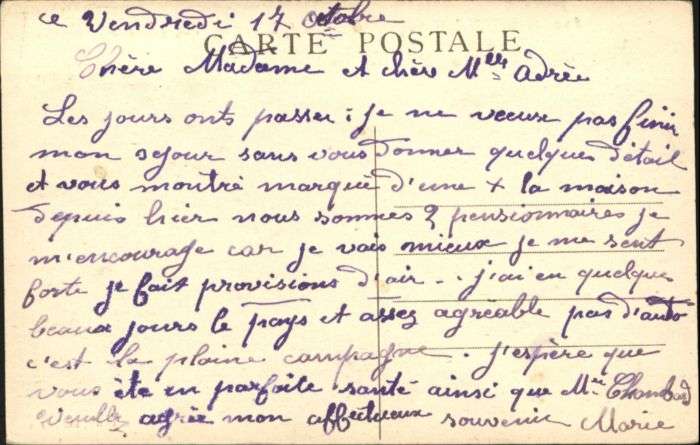 ce Vendredi 17 octobre
CARTE POSTALE
Chère Madame et chère Mlle Adrée
Les jours onts passer ; je ne veeux pas finir
mon sejour sans vous donner quelques détail
et vous montré marqué d'une + la maison
depuis hier nous sommes 2 pensionnaires je
m'encourage car je vais mieux je me sent
forte je fait provisions d'air .. j'ai eu quelque
beaux jours le pays et assez agréable pas d'auto
c'est la plaine campagne . j'espère que
vous ête en parfaite santé ainsi que Mme
agrée mon affectueux souvenir Marie